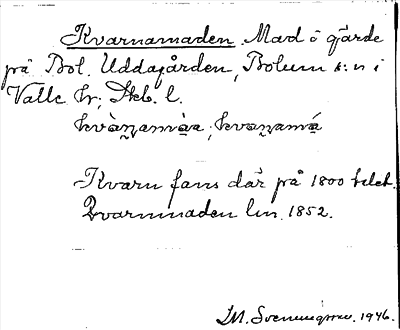 Kvarnamaden. Mad ö gärde
på Bol. Uddagården, Bolum s:n i
Valle hr; Skb. l.
kvàṇamàa; kvaṇamá
Kvarn fans där på 1800 talet.
Qvarnmaden lm. 1852.
M. Svenungsson. 1946.